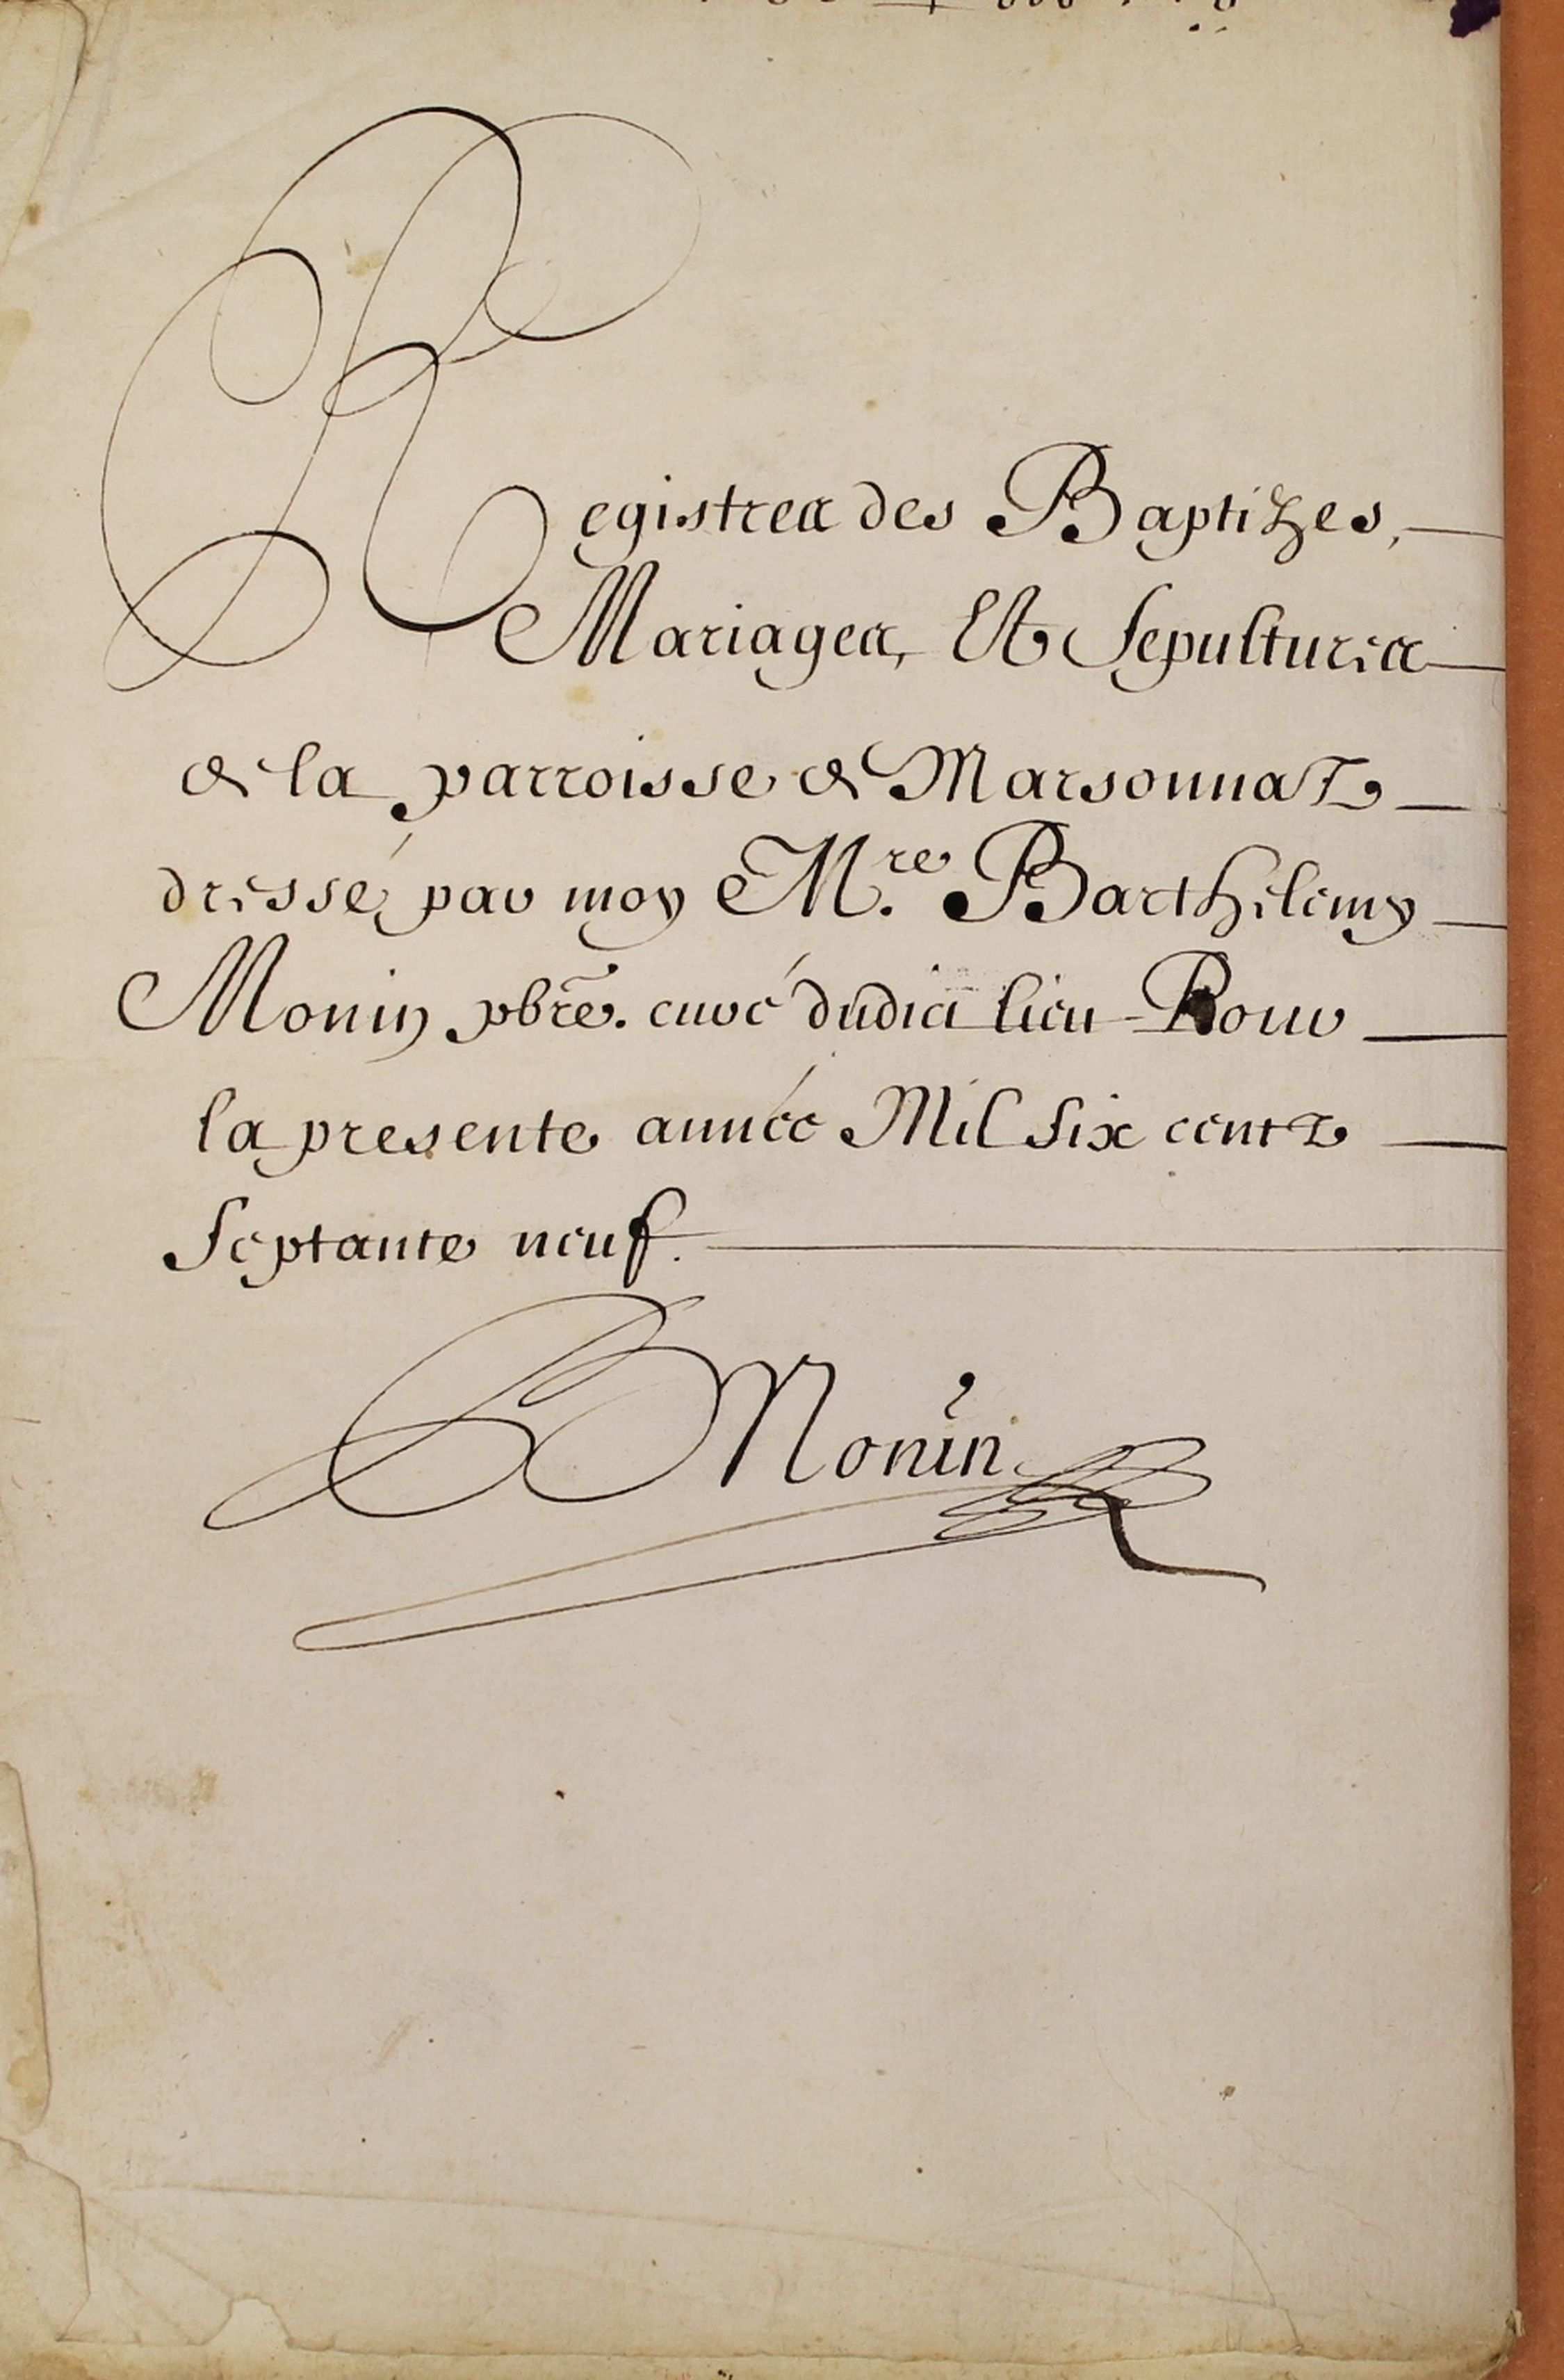 Registres des Baptizes,
Mariages, Et Sepultures
de la parroisse de Marsonnaz
dressé par moy M.re Barthelemy
Monin pbre. curé dudict lieu Pour
la presente année Mil six centz
septante neuf.
Monin